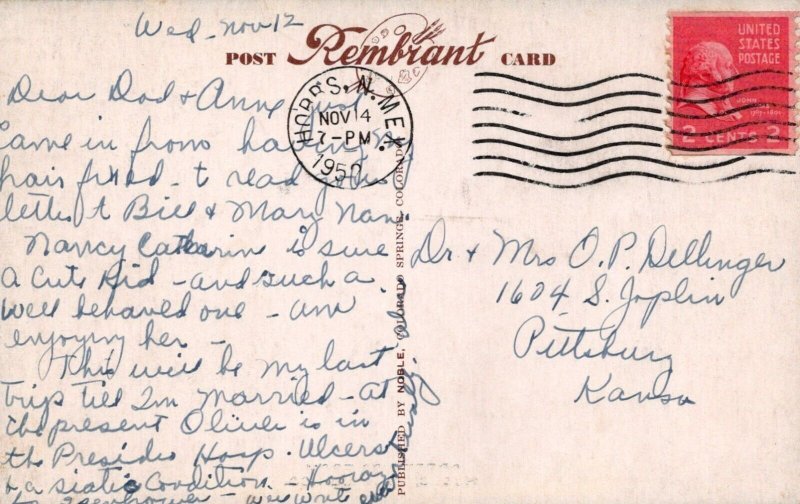 Wed - Nov 12
POST Rembrant CARD
UNITED
STATES
POSTAGE
JOHN
2 CENTS 2
HOBBS. N. MEX.
NOV 14
7 - PM
1952
Dear Dad & Anne just
Came in from having my
hair fixed - & read your
letter to Bill & Mary Nan.
Nancy Catherin is sure
a Cute Kid - and such a
well behaved one - am
enjoying her -
This will be my last
trip till I'm married - at
the present Oliver is in
the Presidio Hosp. Ulcers
& a siatic Condition. Hooray
for Eisenhower - we wont
Dr & Mrs O. P. Dellinger
1604 S. Joplin
Pittsburg
Kansa
PUBLISHED BY NOBLE, COLORADO SPRINGS, COLORADO